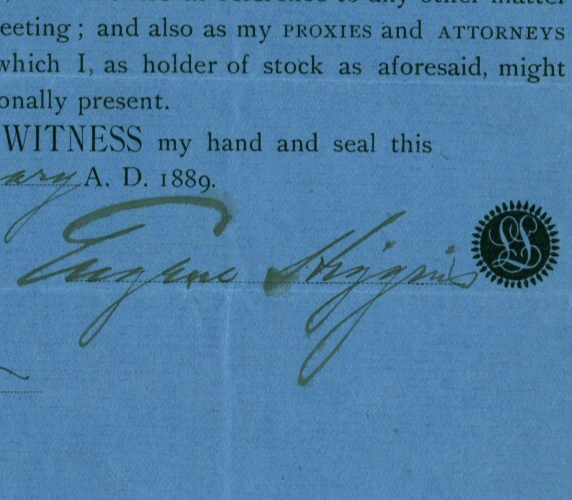 in reference to any other matter
eeting ; and also as my PROXIES and ATTORNEYS
which I, as holder of stock as aforesaid, might
onally present.
WITNESS my hand and seal this
ary A. D. 1889.
Eugene Higgins LS